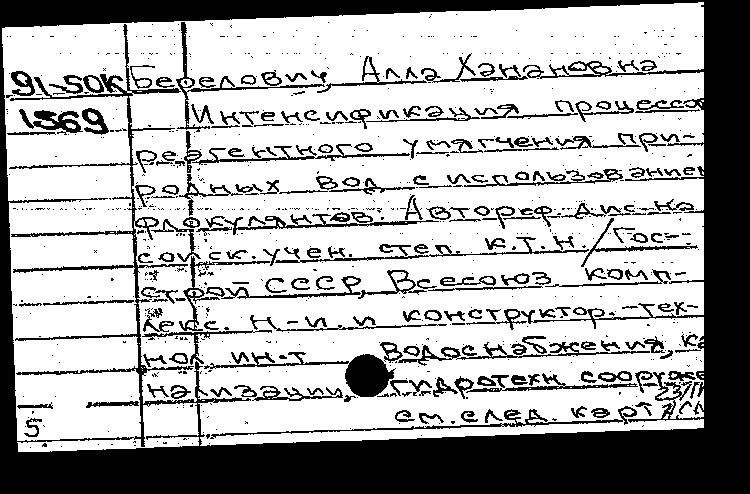 91-50К Берелович, Алла Ханановна
1569 Интенсификация процессов
реагентного умягчения при-
родных вод с использованием
флокулянтов: Автореф. дис. на
соиск. учен. степ. к.т.н. / Гос-
строй СССР, Всесоюз комп-
лекс. н-и. и конструктор.-тех-
нол ин-т водоснабжения, ка
нализации, гидротехн. сооруже
23/
5 см. след. карт